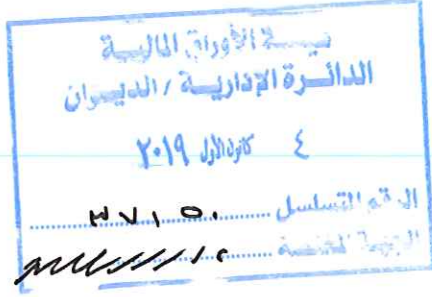 هيئة الأوراق المالية
الدائرة الإدارية / الديوان
٤ كانون الأول ٢٠١٩
الرقم المتسلسل ٣٧١٥٠
الجهة المختصة